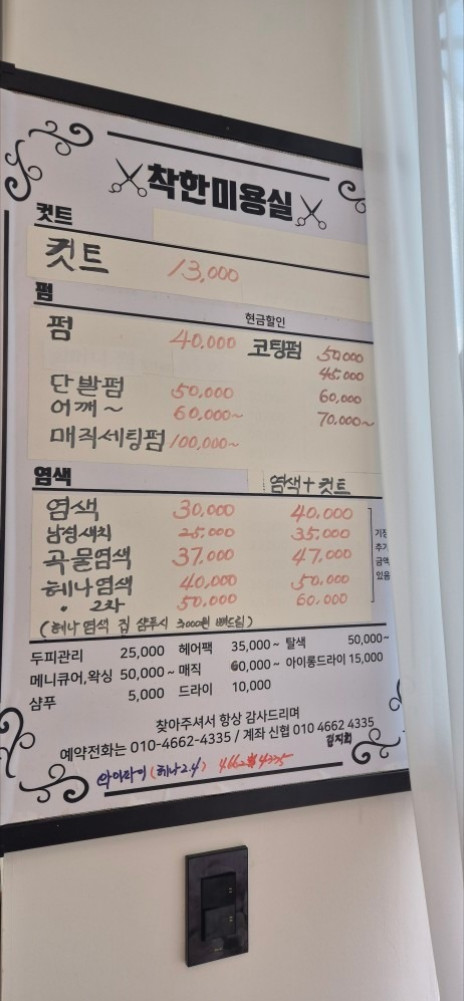 착한미용실
컷트
컷트 13,000
펌 현금할인
펌 40,000 코팅펌 50,000
45,000
단발펌 50,000 60,000
어깨~ 60,000~ 70,000~
매직세팅펌 100,000~
염색 염색+컷트
염색 30,000 40,000
남성새치 25,000 35,000
곡물염색 37,000 47,000
헤나염색 40,000 50,000
• 2차 50,000 60,000
기장
추가
금액
있음
(헤나 염색 집 샴푸시 3000원 빼드림)
두피관리 25,000 헤어팩 35,000~ 탈색 50,000~
메니큐어,왁싱 50,000~ 매직 60,000~ 아이롱드라이 15,000
샴푸 5,000 드라이 10,000
찾아주셔서 항상 감사드리며
예약전화는 010-4662-4335 / 계좌 신협 010 4662 4335
(헤나2.4)